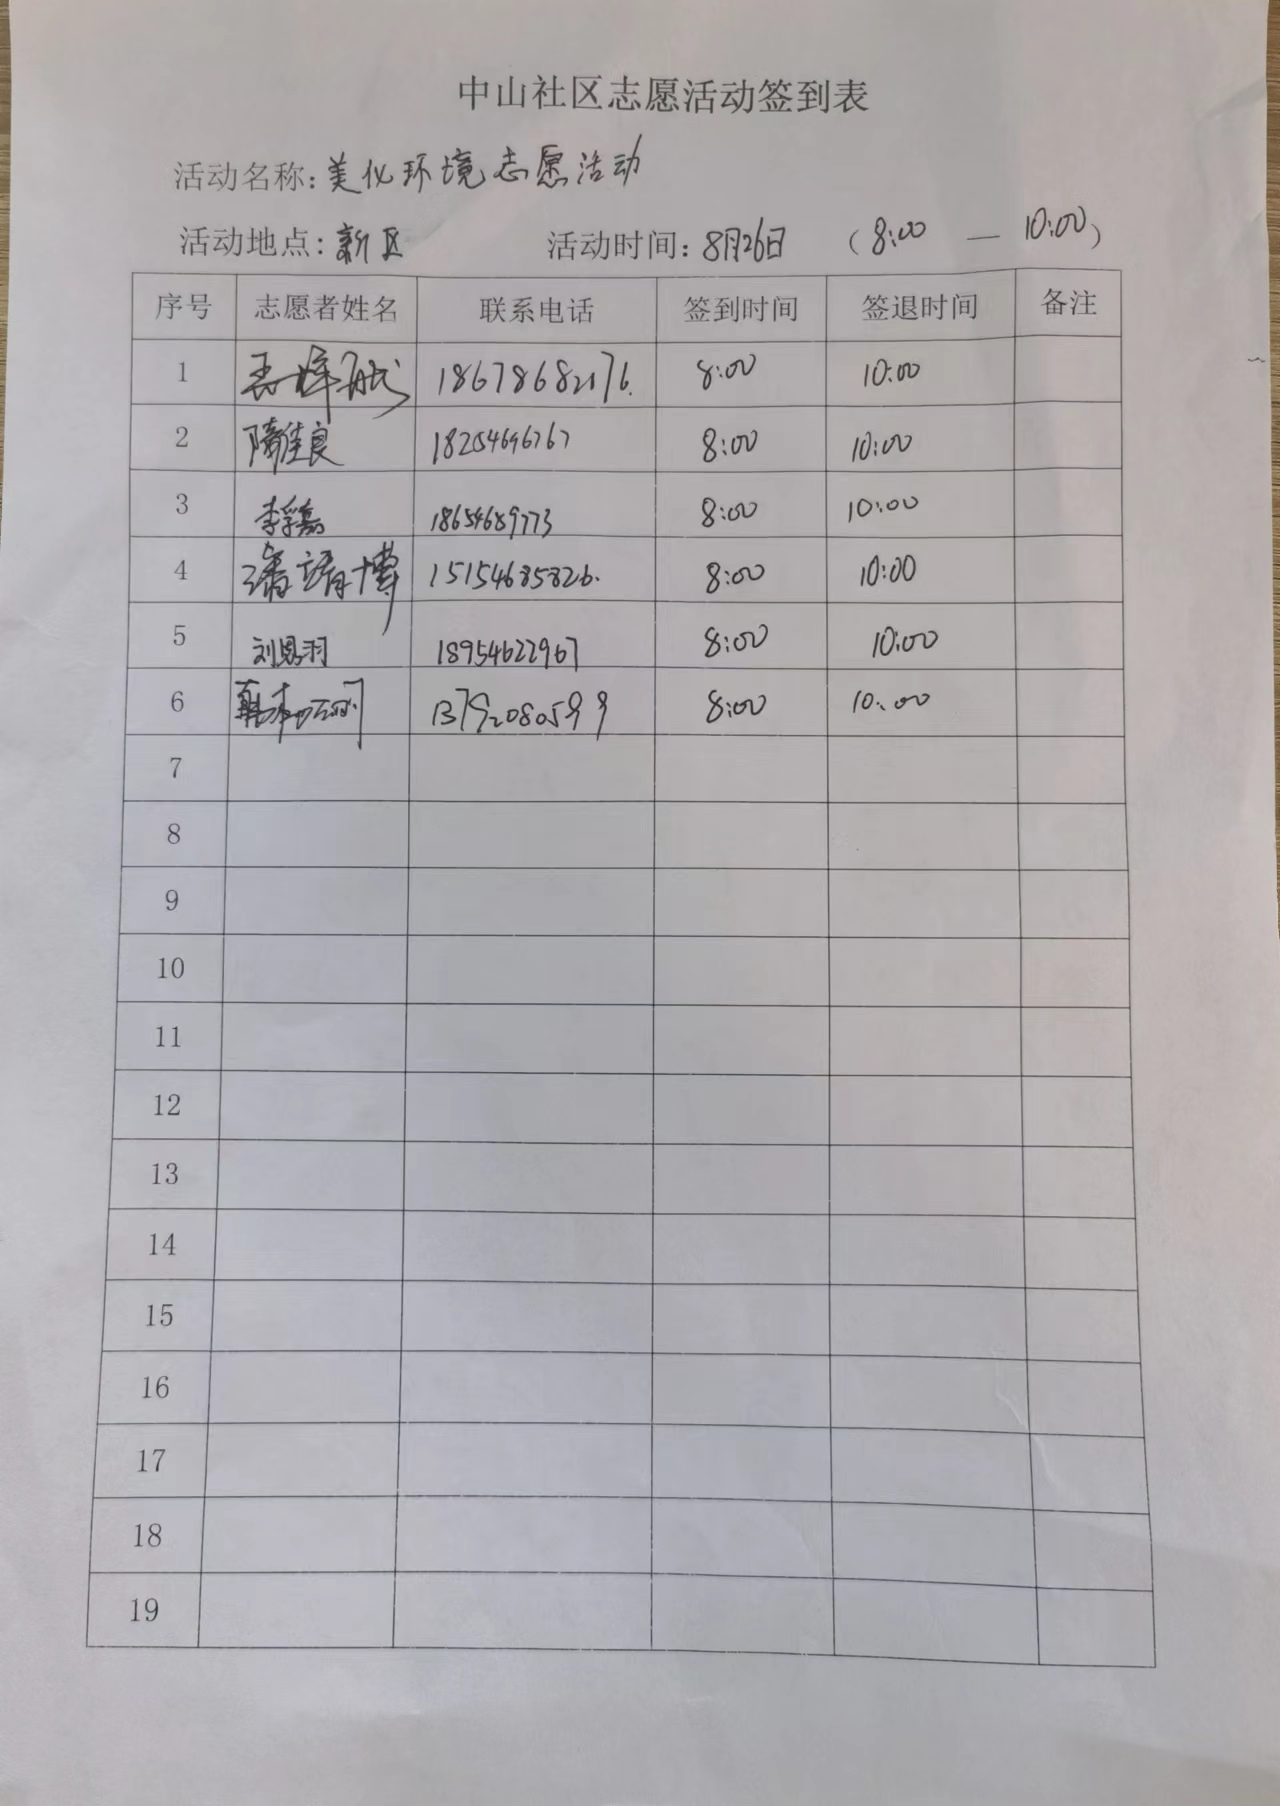 中山社区志愿活动签到表
活动名称: 美化环境志愿活动
活动地点: 新区 活动时间: 8月26日 (8:00 — 10:00)
序号 志愿者姓名 联系电话 签到时间 签退时间 备注
1 18678682176. 8:00 10:00
2 隋佳良 18254696767 8:00 10:00
3 李孚嘉 18654689773 8:00 10:00
4 潘靖博 15154685826. 8:00 10:00
5 刘恩羽 18954622967 8:00 10:00
6 13792080599 8:00 10:00
7
8
9
10
11
12
13
14
15
16
17
18
19